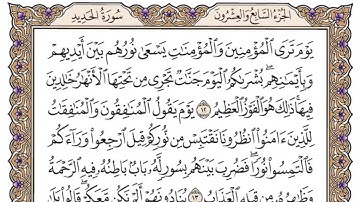 سُورَةُ الحَدِيدِ
الجُزْءُ السَّابِعُ وَالعِشْرُونَ
يَوْمَ تَرَى ٱلْمُؤْمِنِينَ وَٱلْمُؤْمِنَٰتِ يَسْعَىٰ نُورُهُم بَيْنَ أَيْدِيهِمْ
وَبِأَيْمَٰنِهِم بُشْرَىٰكُمُ ٱلْيَوْمَ جَنَّٰتٌ تَجْرِى مِن تَحْتِهَا ٱلْأَنْهَٰرُ خَٰلِدِينَ
فِيهَا ذَٰلِكَ هُوَ ٱلْفَوْزُ ٱلْعَظِيمُ ١٢ يَوْمَ يَقُولُ ٱلْمُنَٰفِقُونَ وَٱلْمُنَٰفِقَٰتُ
لِلَّذِينَ ءَامَنُوا۟ ٱنظُرُونَا نَقْتَبِسْ مِن نُّورِكُمْ قِيلَ ٱرْجِعُوا۟ وَرَآءَكُمْ
فَٱلْتَمِسُوا۟ نُورًا فَضُرِبَ بَيْنَهُم بِسُورٍ لَّهُۥ بَابٌۢ بَاطِنُهُۥ فِيهِ ٱلرَّحْمَةُ
وَظَٰهِرُهُۥ مِن قِبَلِهِ ٱلْعَذَابُ ١٣ يُنَادُونَهُمْ أَلَمْ نَكُن مَّعَكُمْ قَالُوا۟ بَلَىٰ